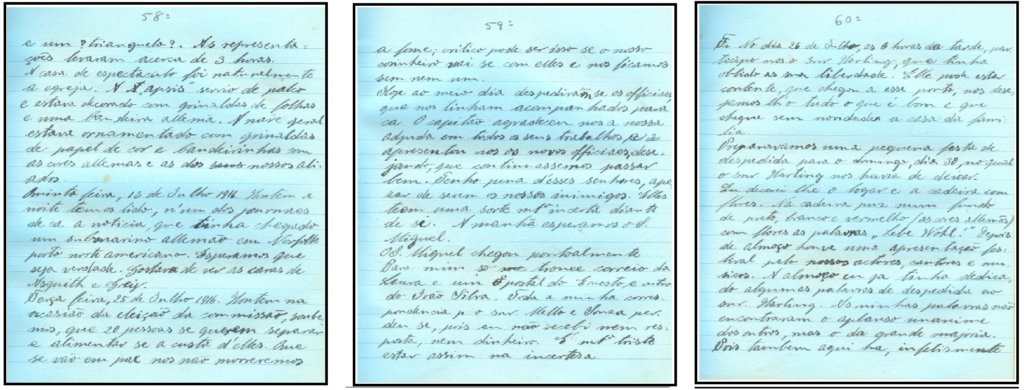 58=
e um ? triangueto ?. As representa-
ções levaram acerca de 3 horas.
A casa de espectaculo foi naturalmente
a egreja. A "apsis" servio de palco
e estava decorado com grinaldas de folhas
e uma bandeira allemã. A nave geral
estava ornamentado com grinaldas
de papel de cor e bandeirinhas com
as cores allemas e as dos nossos alli-
ados.
Quinta feira, 13 de Julho 1916. Hontem a
noite temos lido, n'um dos journaes
de cá a noticia, que tinha chegado
um submarino allemão em Norfolk
porto norte americano. Esperamos que
seja verdade. Gostava de ver as caras de
Asquith e Grey.
Terça feira, 25 de Julho 1916. Hontem na
occasião da eleição da commissão, soube-
mos, que 20 pessoas se querem separar
e alimentar se a custa d'elles. Que
se vão em paz nos não morreremos
59=
a fome; critico pode ser isso se o nosso
cosinheiro sai se com elles e nos ficamos
sem nem um.
Hoje ao meio dia despediram se os officiaes
que nos tinham acompanhados para
ca. O capitão agradeceu nos a nossa
adjuda em todos os seus trabalhos,
apresentou nos os novos officiaes, dese-
jando, que continuassemos passar
bem. Tenho pena d'esses senhores, ape-
zar de serem os nossos inimigos. Elles
teem uma sorte mto incerta diante
de si. A manhã esperamos o S.
Miguel.
O S. Miguel chegou pontoalmente
Para mim so me trouce correio da
Laura e um postal do Ernesto, e outro
do João Silva. Toda a minha corres-
pondencia p o snr Mello e Souza per-
deu se, pois eu não recebi nem res-
posta, nem dinheiro. É mto triste
estar assim na incerteza.
60=
No dia 26 de Julho, as 6 horas da tarde, par-
ticipo nos o snr Harting, que tinha
obtido as sua liberdade. Elle pode estar
contente, que chegou a esse porto, nos dese-
jemos lho tudo o que é bom e que
chegue sem novidades a casa da fami-
lia.
Preparavamos uma pequena festa de
despedida para o domingo, dia 30, no qual
o snr Harting nos havia de deixar.
Eu decorei lhe o logar e a cadeira com
flores. Na cadeira puz num fundo
de preto, branco e vermelho (as cores allemãs)
com flores as palavras "Lebe Wohl." Depois
de almoço houve uma apresentação fes-
tival pelo nossos actores, cantores e mu-
sicos. A almoço eu ja tinha dedica-
do algumas palavras de despedida ao
snr Harting. As minhas palavras não
encontraram o aplauso unanime
dos outros, mas o da grande majoria.
Pois tambem aqui ha, infelismente